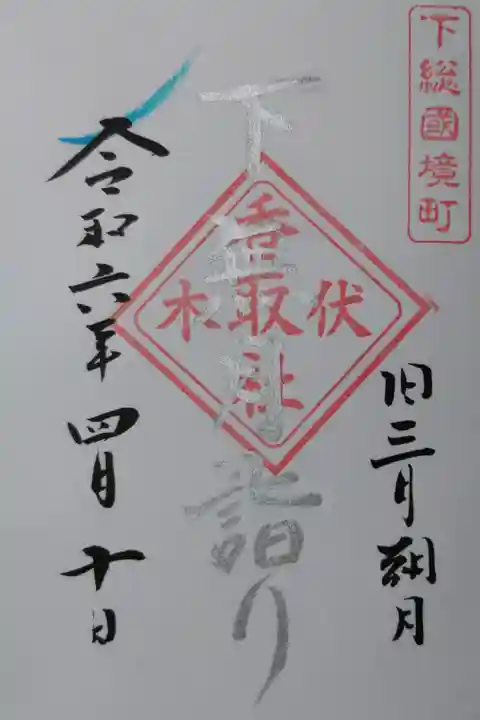 下総國境町
旧三月朔月
下
月詣り
伏木
香取社
令和六年四月十日